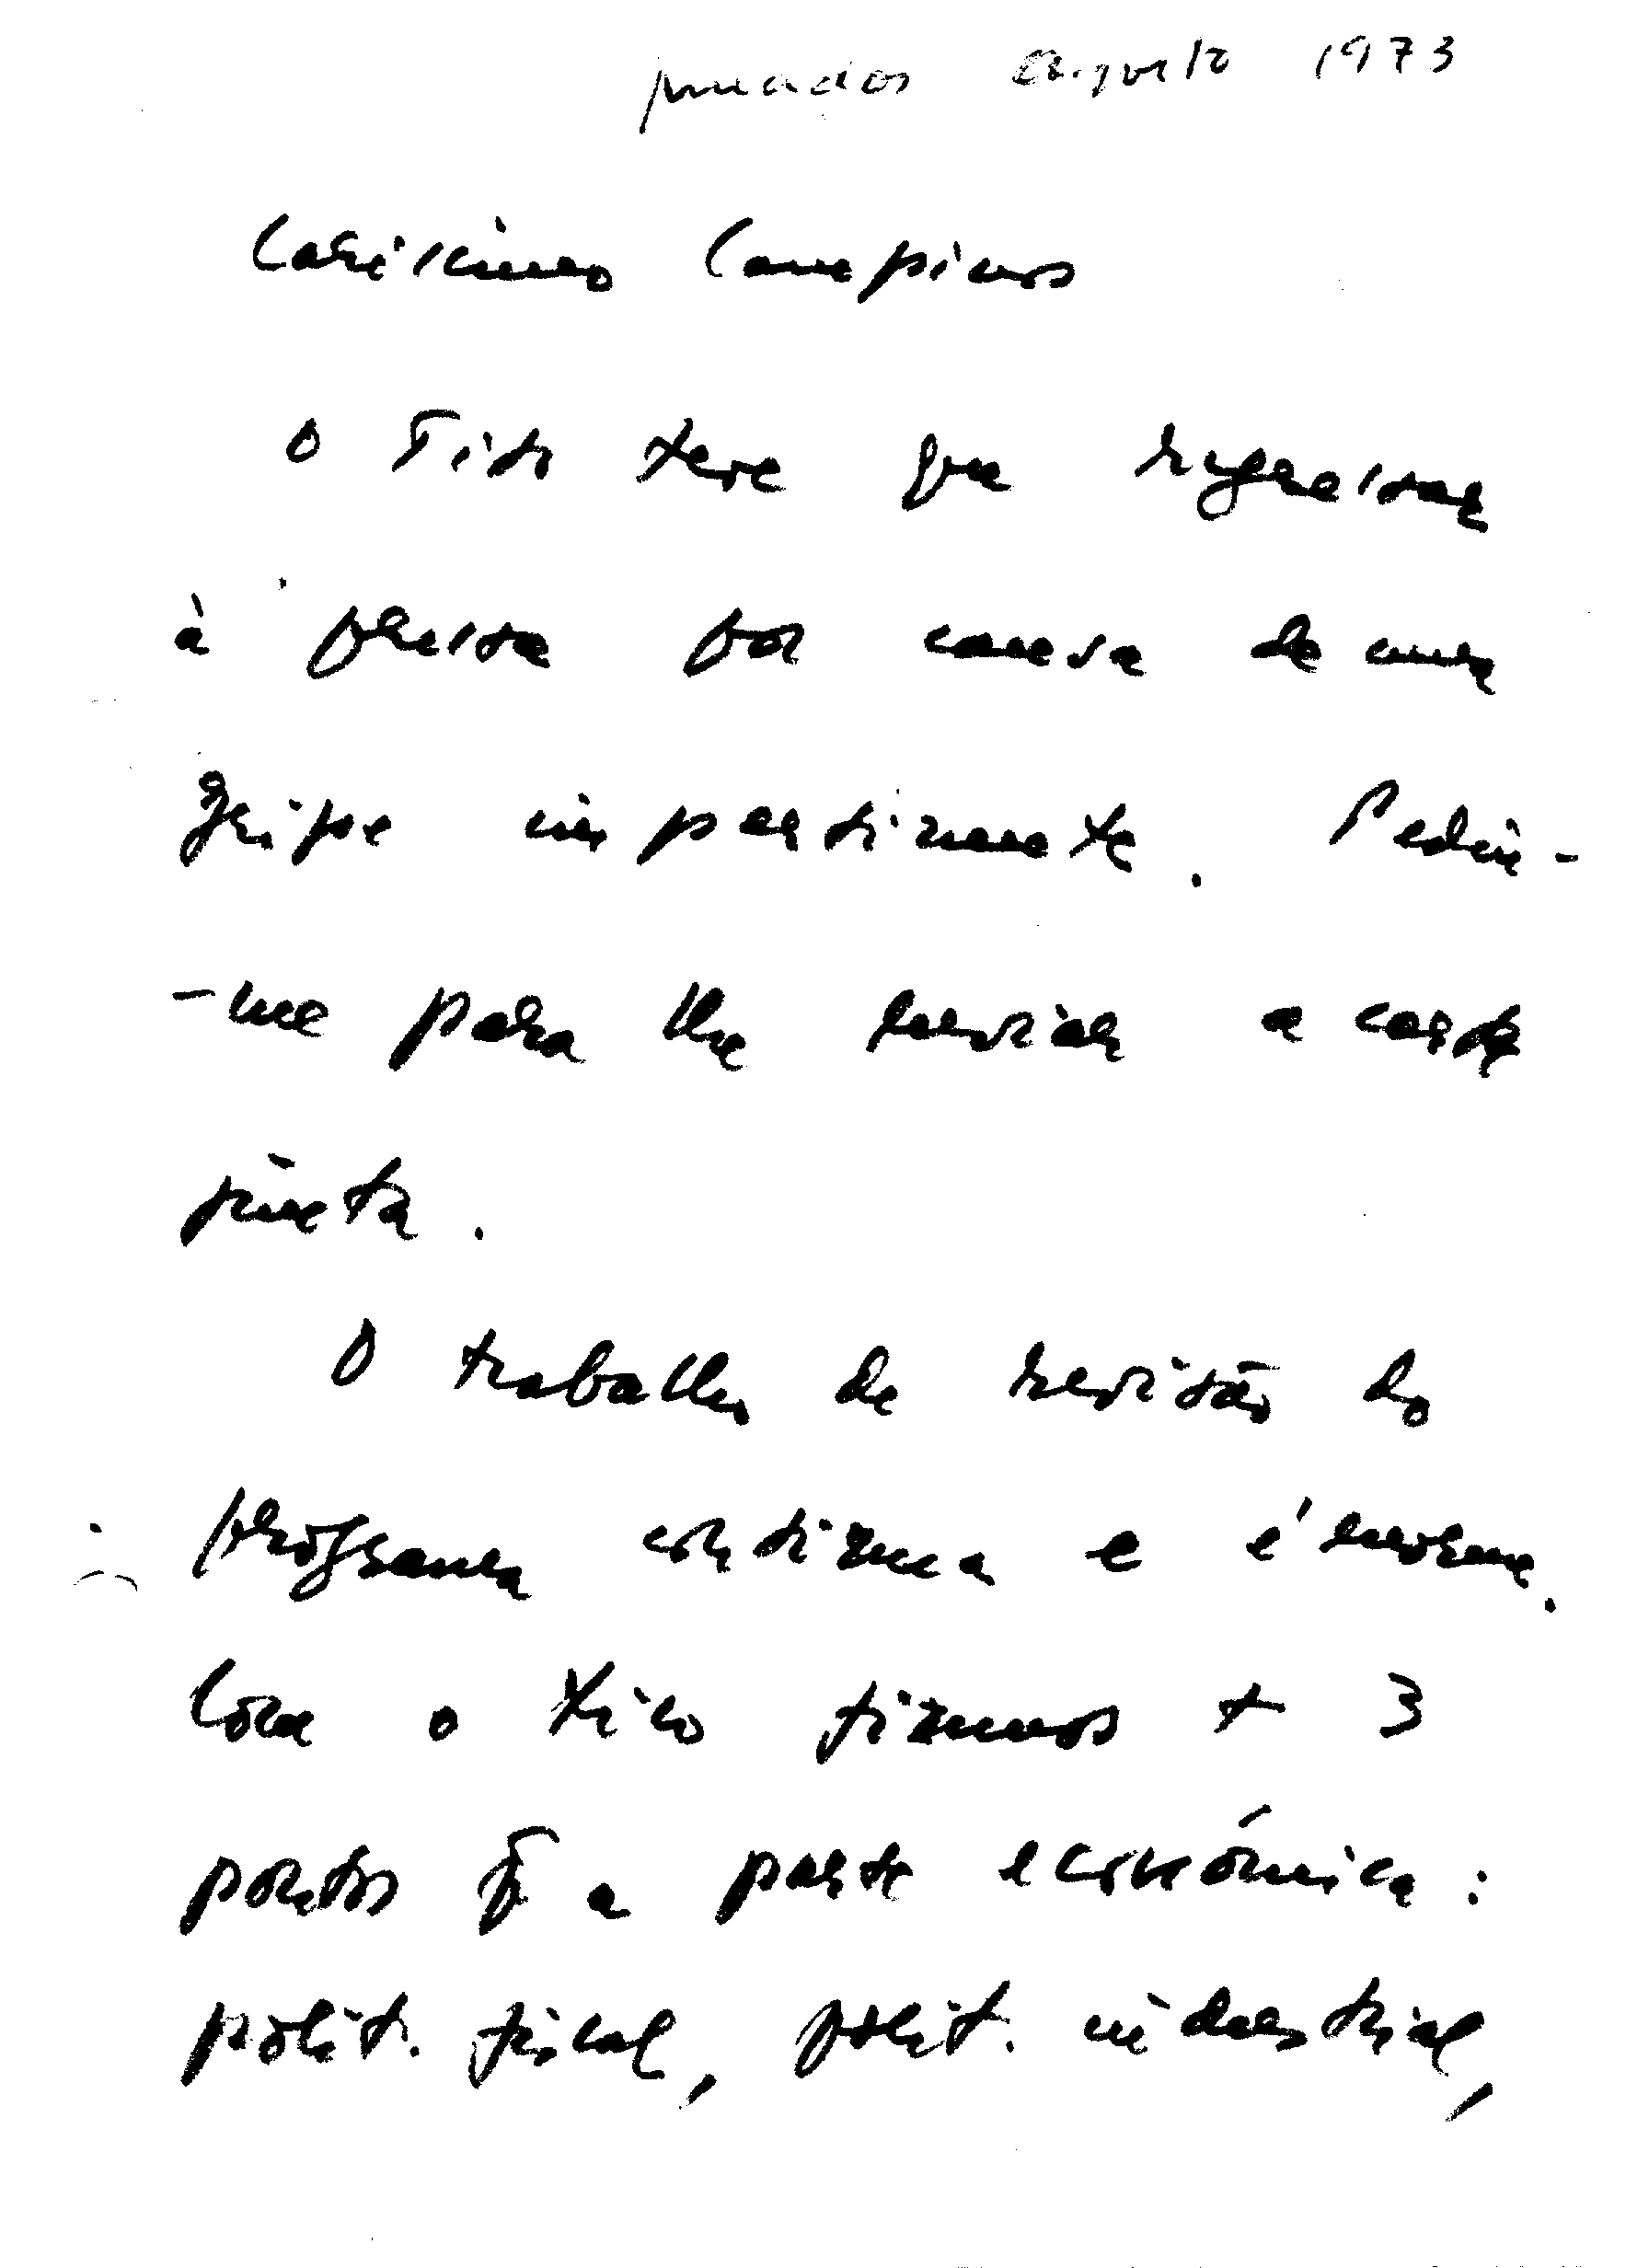 meados agosto 1973
Caríssimo Campinos
O Tito teve que regressar
à pressa por causa de uma
gripe impertinente. Pediu-
-me para lhe enviar a carta
junta.
O trabalho de revisão do
programa continua e é enorme.
Com o Tito fizemos + 3
pontos q̃ a parte económica:
polít. fiscal, polít. industrial,